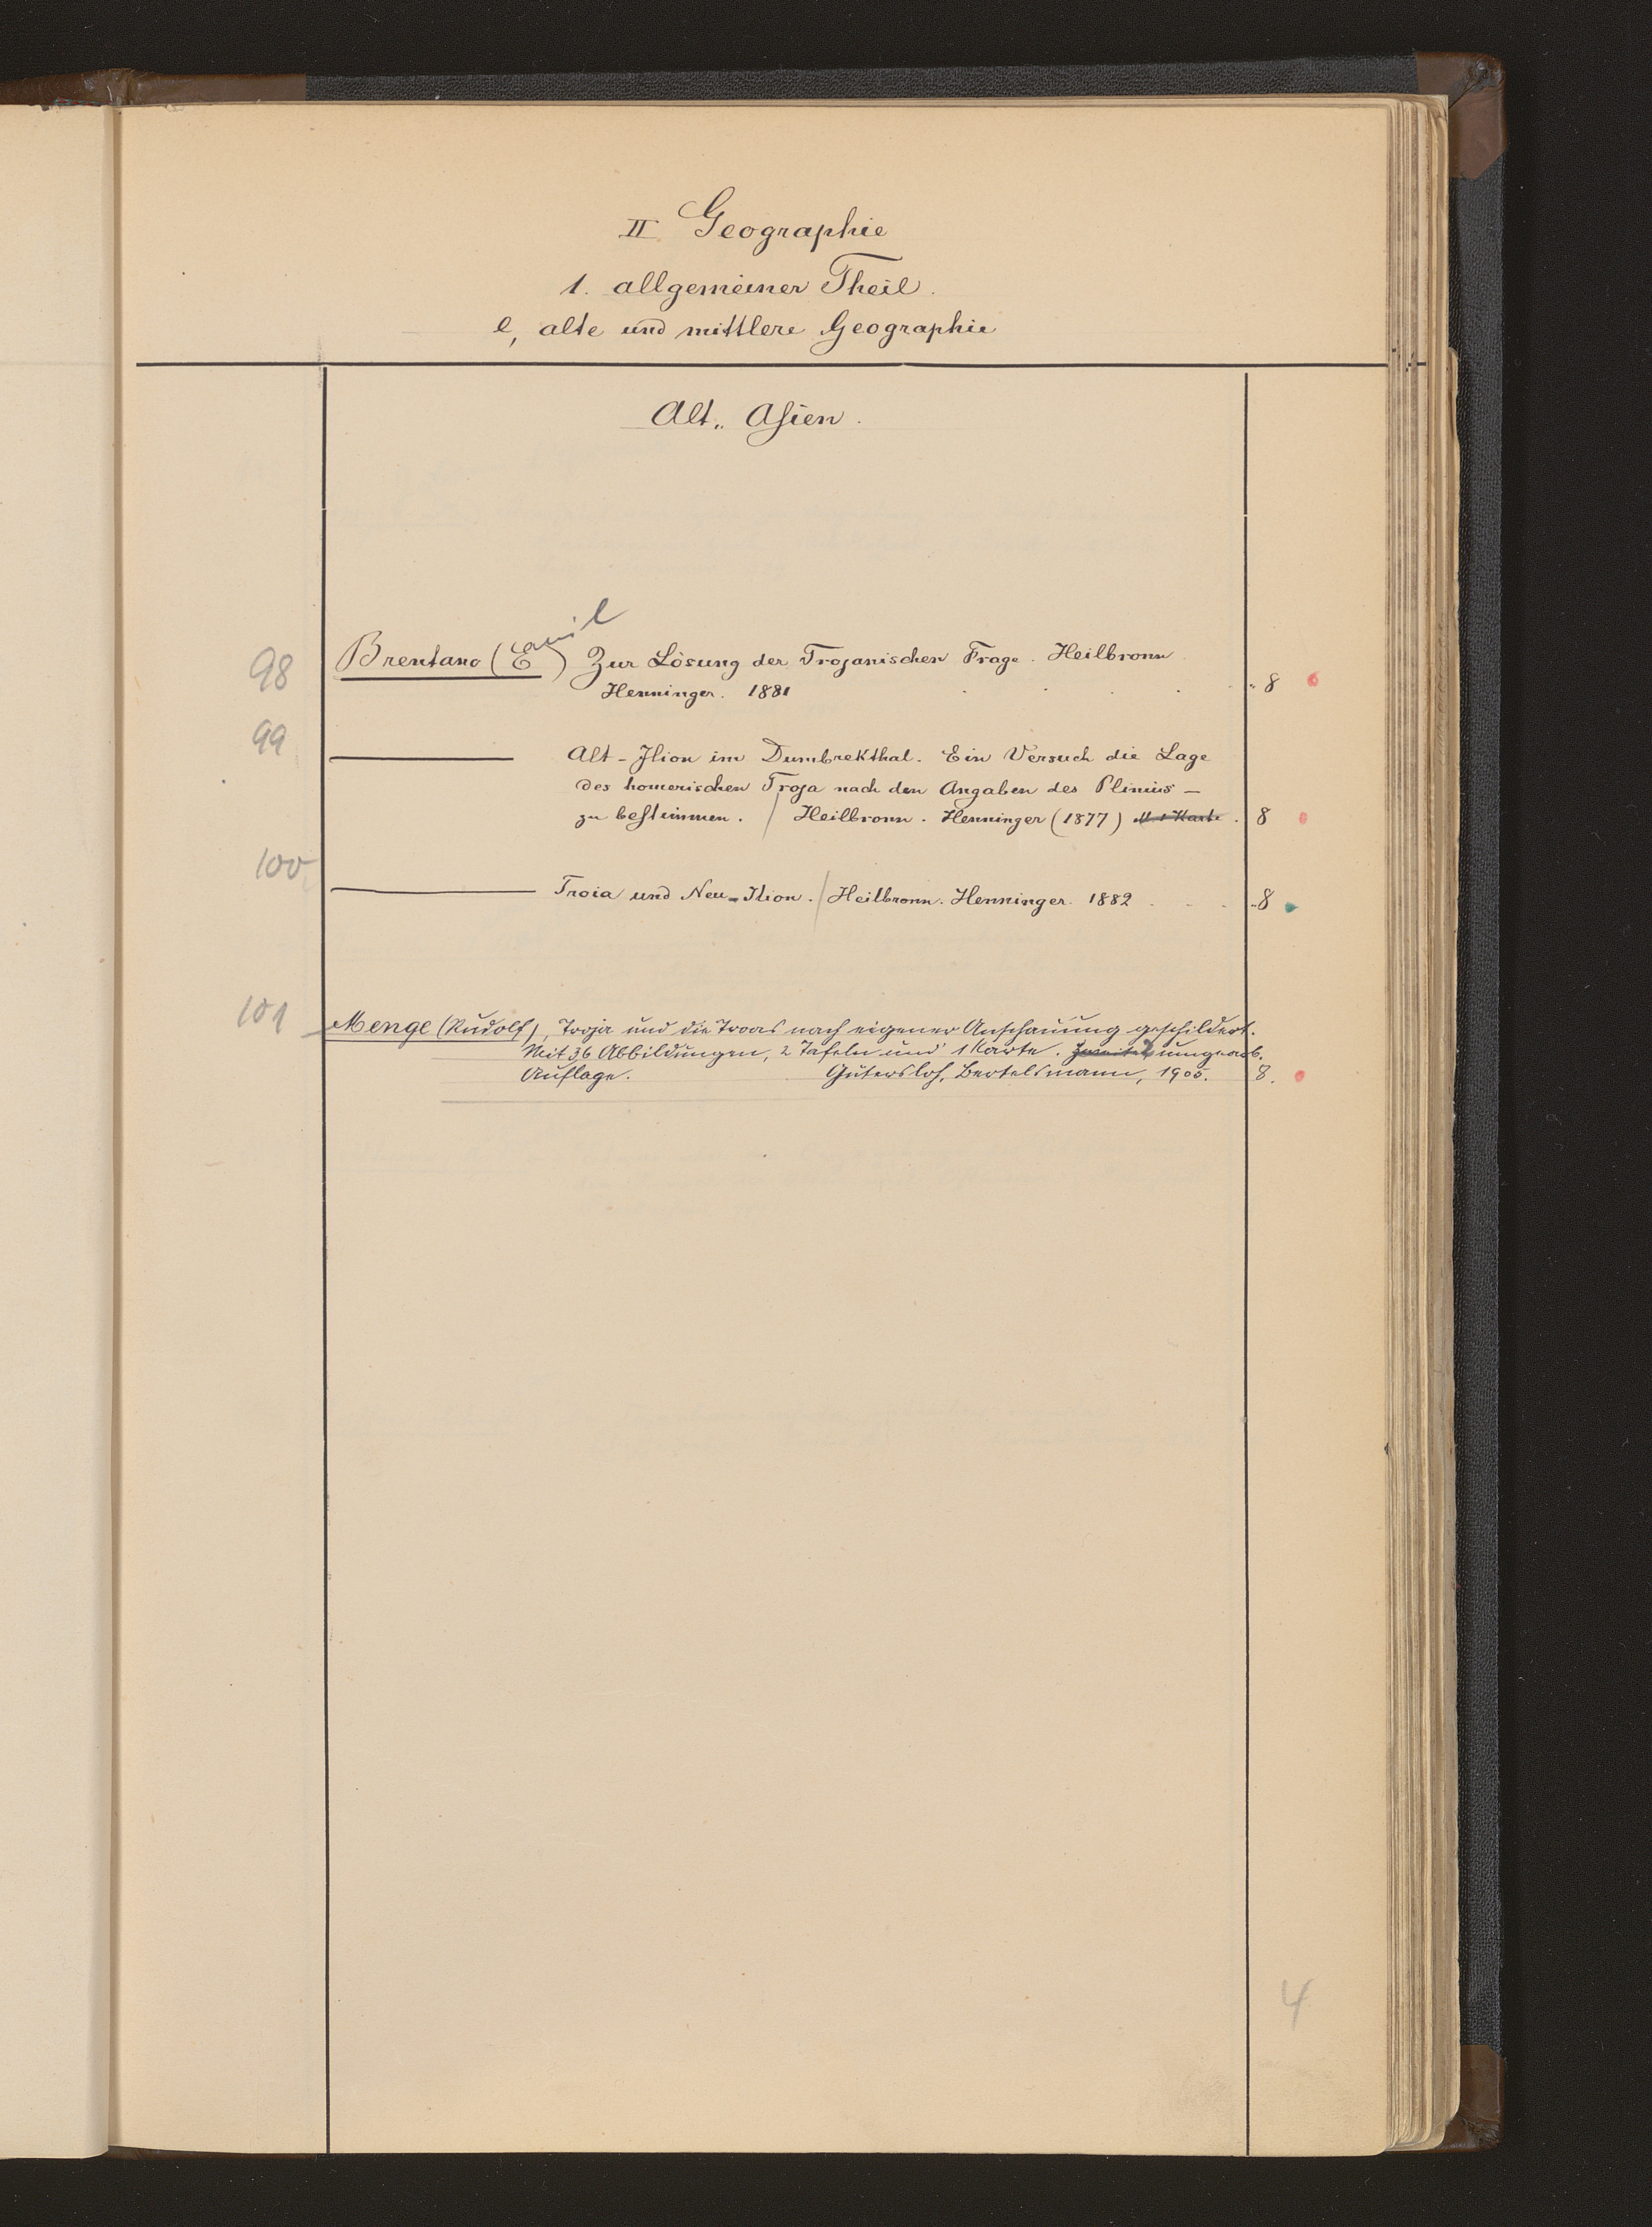 II. Geographie
1. allgemeiner Theil.
e, alte und mittlere Geographie
Alt„ Asien.
98 Brentano (Emil) Zur Lösung der Trojanischen Frage. Heilbronn
Henninger. 1881 8
99 Alt-Ilion im Dumbrekthal. Ein Versuch die Lage
des homerischen Troja nach den Angaben des Plinius –
zu bestimmen. / Heilbronn. Henninger (1877) M. 1 Karte. 8
100 Troia und Neu-Ilion. / Heilbronn. Henninger. 1882 8
101 Menge (Rudolf), Troja und die Troas nach eigener Anschauung geschildert.
Mit 36 Abbildungen, 2 Tafeln und 1 Karte. Zweite 2 umgearb.
Auflage. Gütersloh, Bertelsmann, 1905. 8.
4